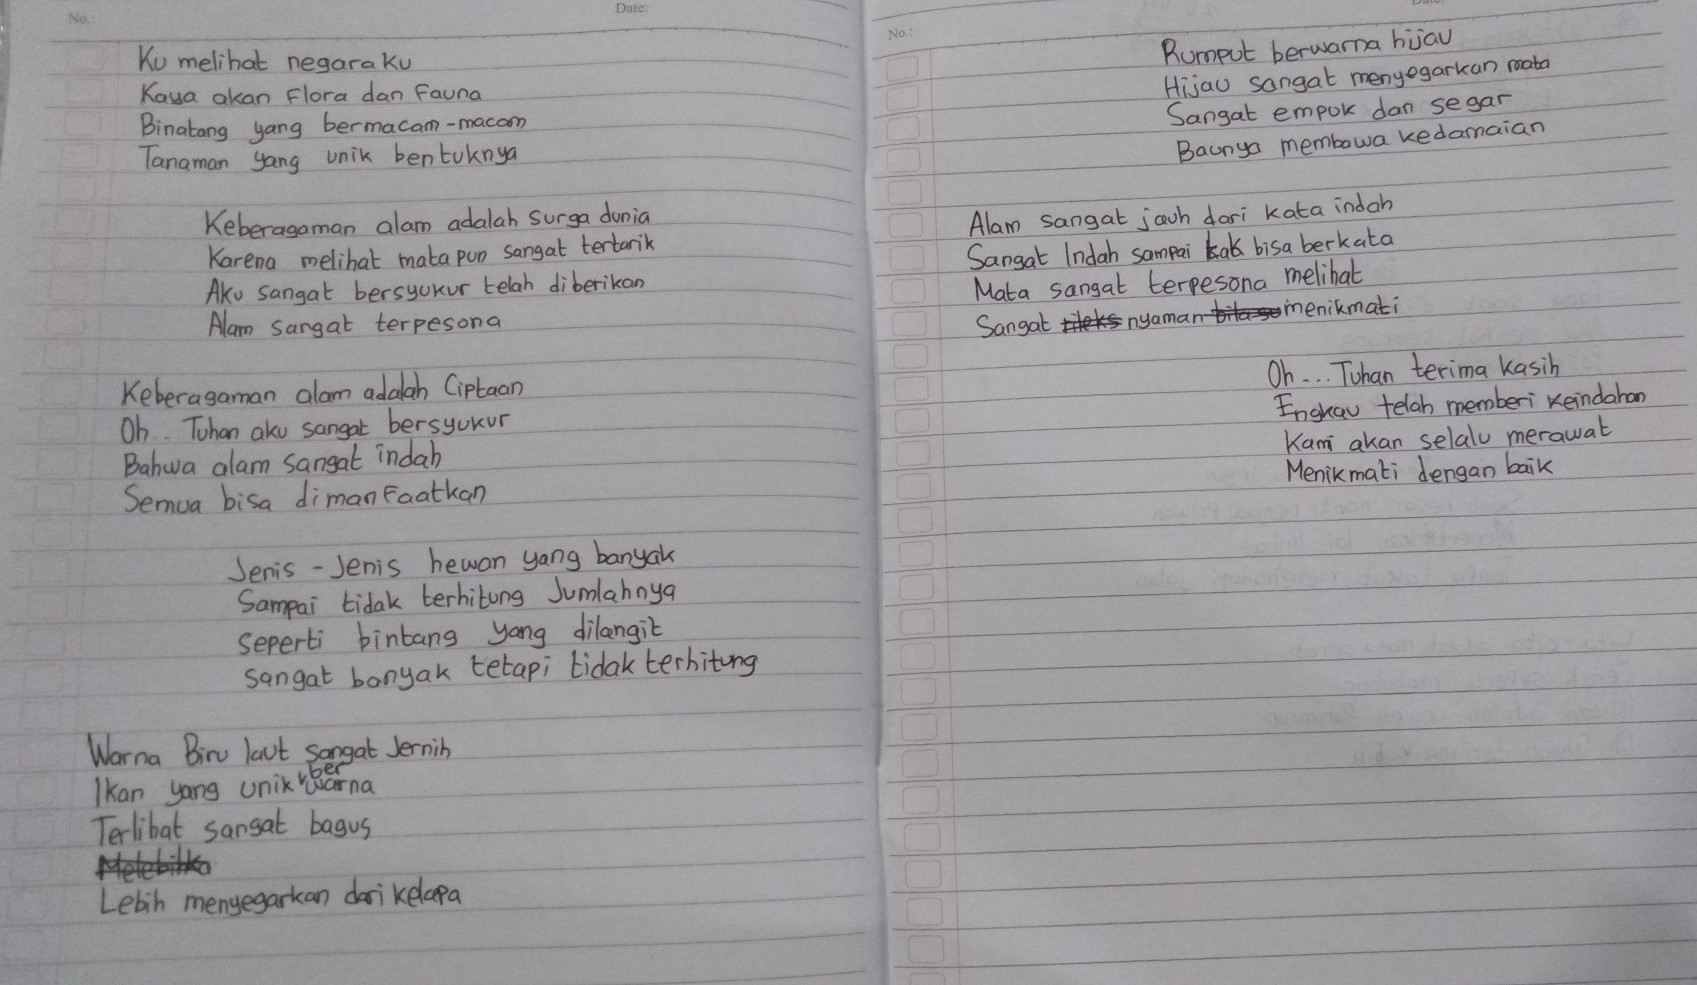 No.:
Date:
Ku melihat negaraku
Kaya akan Flora dan Fauna
Binatang yang bermacam-macam
Tanaman yang unik bentuknya
Keberagaman alam adalah surga dunia
Karena melihat mata pun sangat tertarik
Aku sangat bersyukur telah diberikan
Alam sangat terpesona
Keberagaman alam adalah Ciptaan
Oh.. Tuhan aku sangat bersyukur
Bahwa alam sangat indah
Semua bisa dimanfaatkan
Jenis - Jenis hewan yang banyak
Sampai tidak terhitung Jumlahnya
seperti bintang yang dilangit
sangat banyak tetapi tidak terhitung
Warna Biru laut sangat Jernih
Ikan yang unik berwarna
Terlihat sangat bagus
Lebih menyegarkan dari kelapa
No.:
Rumput berwarna hijau
Hijau sangat menyegarkan mata
Sangat empuk dan segar
Baunya membawa kedamaian
Alam sangat jauh dari kata indah
Sangat Indah sampai tak bisa berkata
Mata sangat terpesona melihat
Sangat nyaman menikmati
Oh... Tuhan terima kasih
Engkau telah memberi keindahan
Kami akan selalu merawat
Menikmati dengan baik